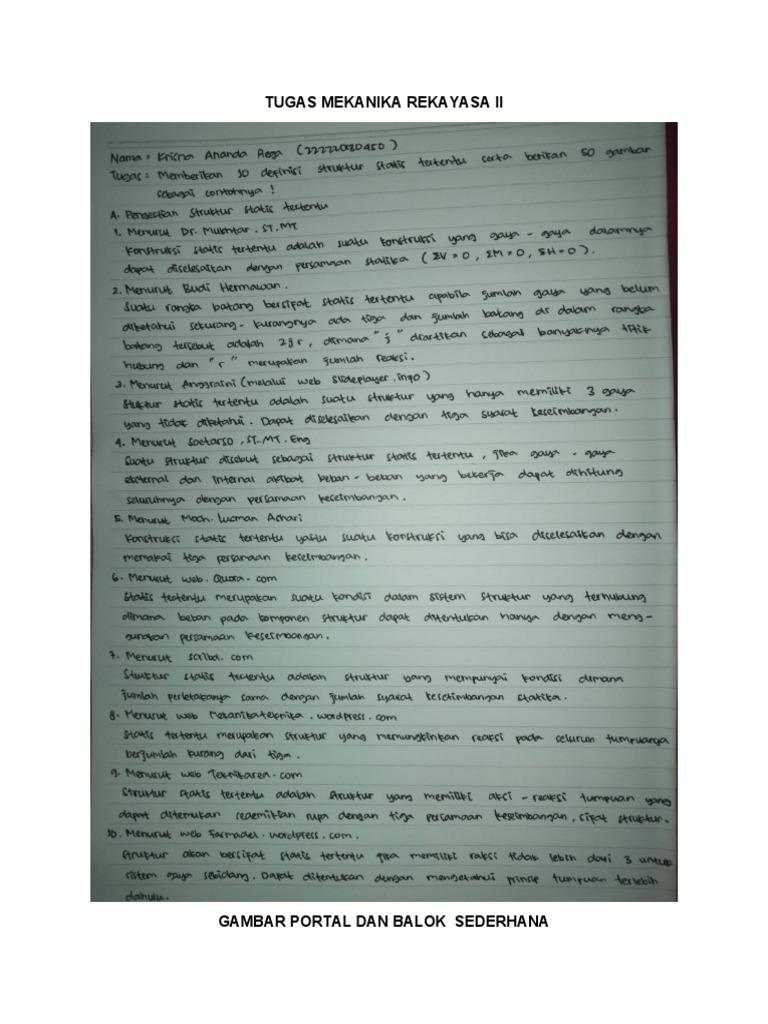 TUGAS MEKANIKA REKAYASA II
Nama : Krisna Ananda Rega (22222080450)
Tugas : Memberikan 10 definisi struktur statis tertentu serta berikan 50 gambar
sebagai contohnya !
A. Pengertian Struktur Statis Tertentu
1. Menurut Dr. Mukhtar. ST. MT
Konstruksi statis tertentu adalah suatu konstruksi yang gaya - gaya dalamnya
dapat diselesaikan dengan persamaan statika ( ΣV = 0 , ΣM = 0 , ΣH = 0 ).
2. Menurut Budi Hermawan.
Suatu rangka batang bersifat statis tertentu apabila jumlah gaya yang belum
diketahui sekurang - kurangnya ada tiga dan jumlah batang di dalam rangka
batang tersebut adalah 2jr , dimana "j" diartikan sebagai banyaknya titik
hubung dan "r" merupakan jumlah reaksi.
3. Menurut Anggraini (melalui web slideplayer.info)
Stuktur statis tertentu adalah suatu struktur yang hanya memiliki 3 gaya
yang tidak diketahui. Dapat diselesaikan dengan tiga syarat keseimbangan.
4. Menurut Soetarso , ST., MT. Eng
Suatu struktur disebut sebagai struktur statis tertentu, jika gaya - gaya
eksternal dan internal akibat beban - beban yang bekerja dapat dihitung
seluruhnya dengan persamaan keseimbangan.
5. Menurut Moch. Lucman Ashari
Konstruksi statis tertentu yaitu suatu konstruksi yang bisa diselesaikan dengan
memakai tiga persamaan keseimbangan.
6. Menurut web. Quora. com
Statis tertentu merupakan suatu kondisi dalam sistem struktur yang terhubung
dimana beban pada komponen struktur dapat ditentukan hanya dengan meng-
gunakan persamaan keseimbangan.
7. Menurut scribd. com
Struktur statis tertentu adalah struktur yang mempunyai kondisi dimana
jumlah perletakanya sama dengan jumlah syarat kesetimbangan statika.
8. Menurut web Mekanikateknika . wordpress . com
Statis tertentu merupakan struktur yang memungkinkan reaksi pada seluruh tumpuanya
berjumlah kurang dari tiga.
9. Menurut web Teknikarea. com
Struktur statis tertentu adalah struktur yang memiliki aksi - reaksi tumpuan yang
dapat ditemukan sedemikian rupa dengan tiga persamaan keseimbangan, sifat struktur.
10. Menurut web Farmadel. wordpress. com.
Struktur akan bersifat statis tertentu jika memiliki raksi tidak lebih dari 3 untuk
sistem gaya sebidang. Dapat ditentukan dengan mengetahui prinsip tumpuan terlebih
dahulu.
GAMBAR PORTAL DAN BALOK SEDERHANA